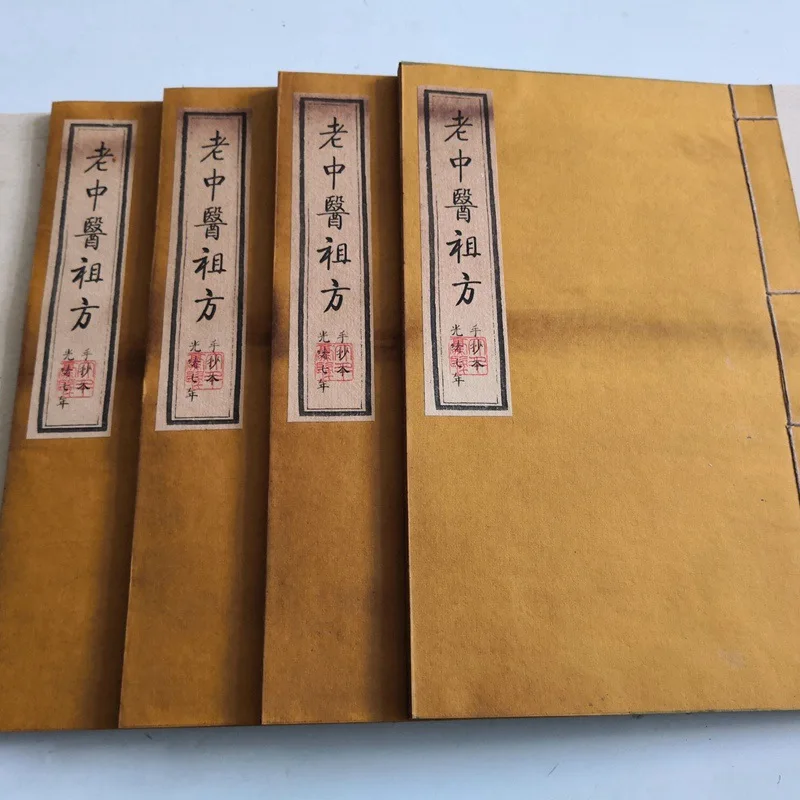 老中醫祖方
手抄本
光緒七年
老中醫祖方
手抄本
光緒七年
老中醫祖方
手抄本
光緒七年
老中醫祖方
手抄本
光緒七年